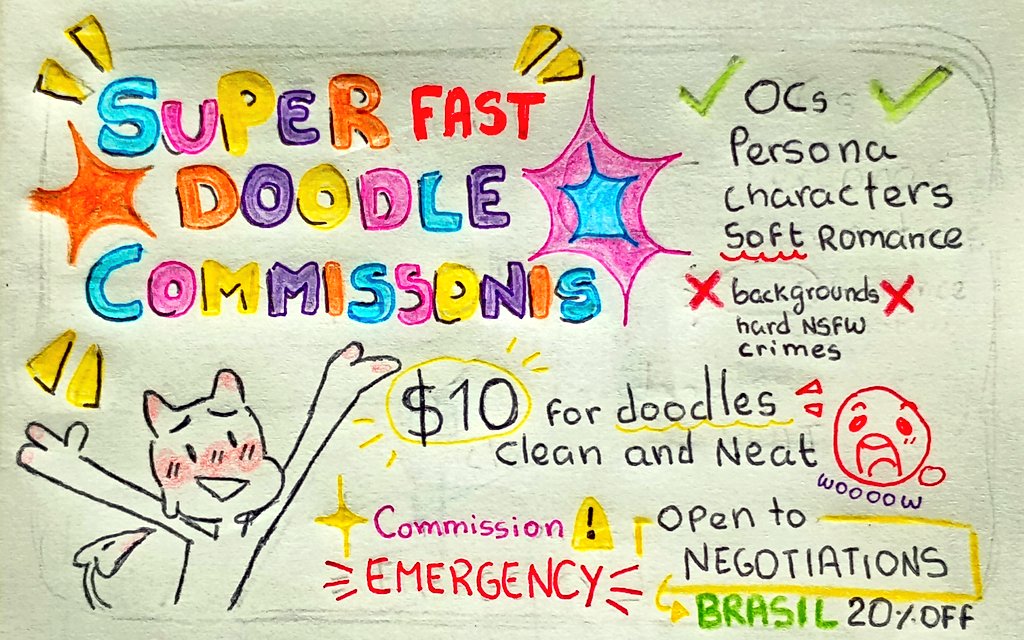 SUPER FAST
DOODLE
COMMISSONIS
OCs
Persona
characters
Soft Romance
backgrounds
hard NSFW
crimes
$10 for doodles
clean and Neat
woooow
Commission !
EMERGENCY
Open to
NEGOTIATIONS
BRASIL 20% OFF